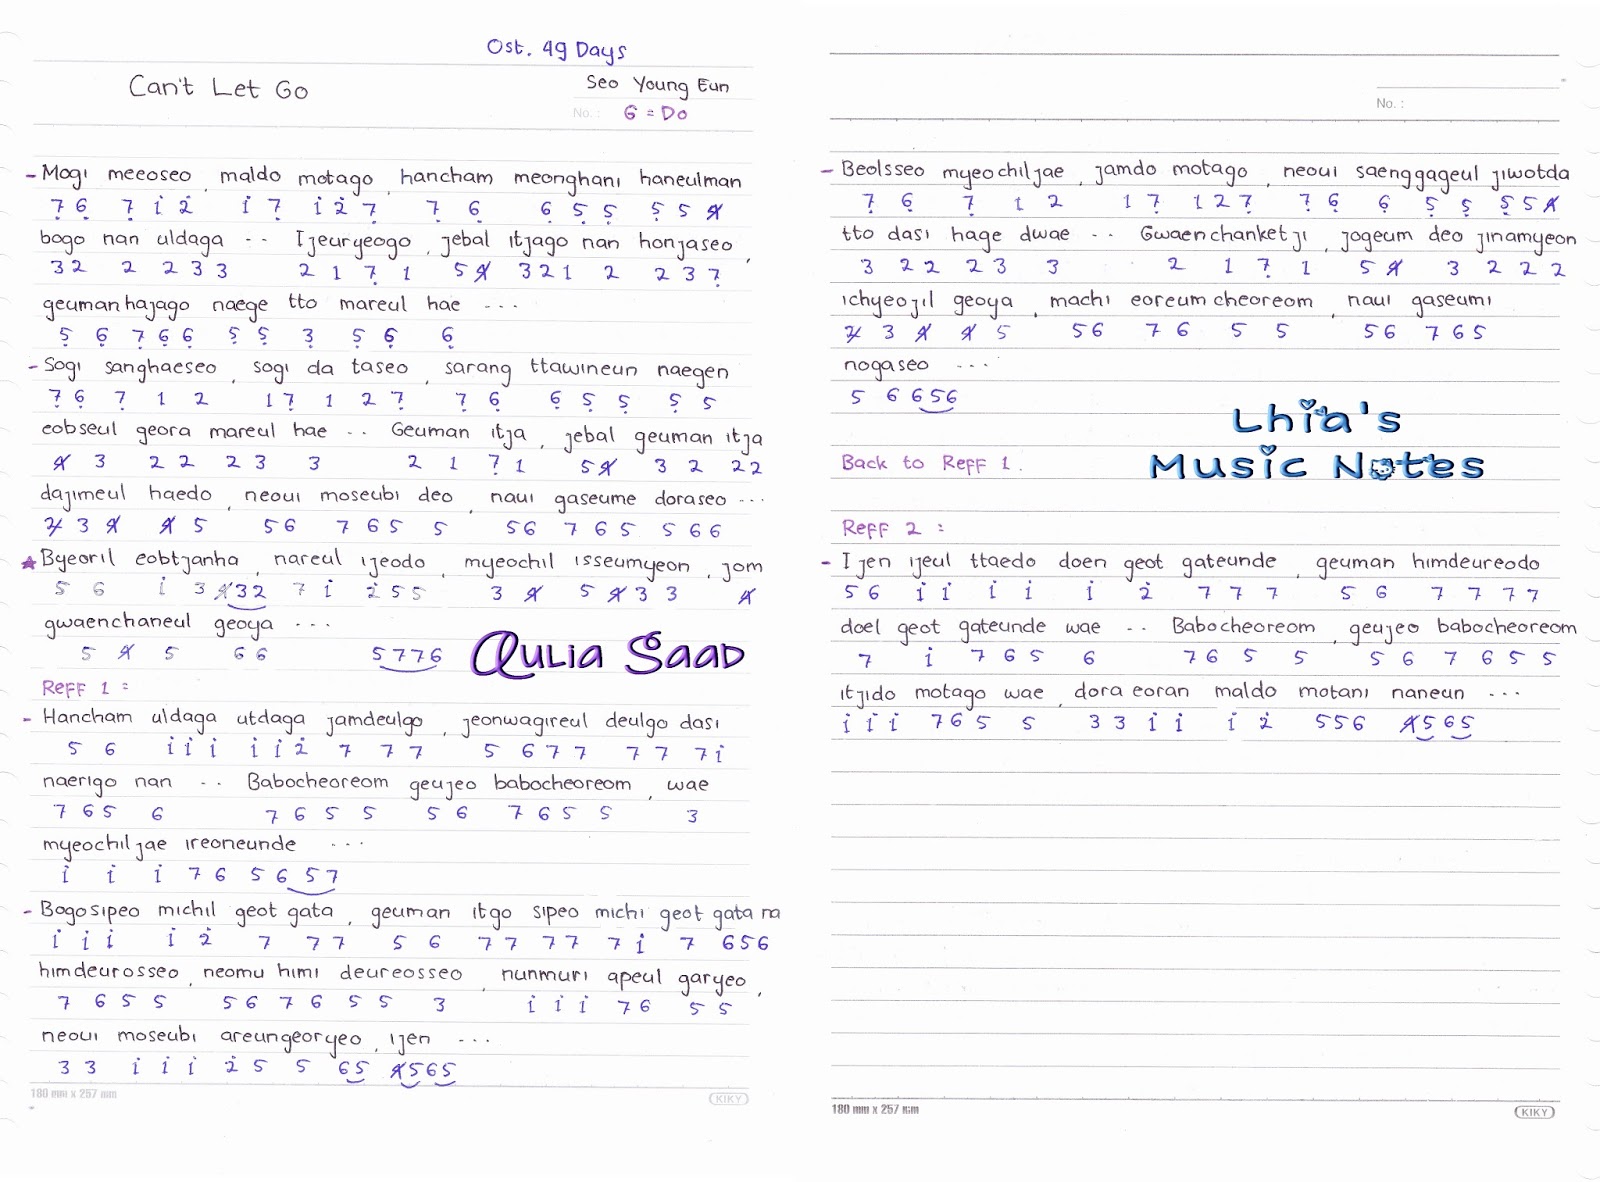 Ost. 49 Days
Can't Let Go
Seo Young Eun
No. : G = Do
- Mogi meeoseo , maldo motago , hancham meonghani haneulman
7 6 7 1 2 1 7 1 2 7 7 6 6 5 5 5 5 4
bogo nan uldaga -- Ijeuryeogo , jebal itjago nan honjaseo ,
3 2 2 2 3 3 2 1 7 1 5 4 3 2 1 2 2 3 7
geumanhajago naege tto mareul hae ---
5 6 7 6 6 5 5 3 5 6 6
- Sogi sanghaeseo , sogi da taseo , sarang ttawineun naegen
7 6 7 1 2 1 7 1 2 7 7 6 6 5 5 5 5
eobseul geora mareul hae -- Geuman itja , jebal geuman itja
4 3 2 2 2 3 3 2 1 7 1 5 4 3 2 2 2
dajimeul haedo , neoui moseubi deo , naui gaseume doraseo ---
2 3 4 4 5 5 6 7 6 5 5 5 6 7 6 5 5 6 6
★ Byeoril eobtjanha , nareul ijeodo , myeochil isseumyeon , jom
5 6 1 3 4 3 2 7 1 2 5 5 3 4 5 4 3 3 4
gwaenchaneul geoya ---
5 4 5 6 6 5 7 7 6
Qulia Saad
Reff 1 =
- Hancham uldaga utdaga jamdeulgo , jeonwagireul deulgo dasi
5 6 1 1 1 1 1 2 7 7 7 5 6 7 7 7 7 7 1
naerigo nan -- Babocheoreom geujeo babocheoreom , wae
7 6 5 6 7 6 5 5 5 6 7 6 5 5 3
myeochiljae ireoneunde ---
1 1 1 7 6 5 6 5 7
- Bogosipeo michil geot gata , geuman itgo sipeo michi geot gata na
1 1 1 1 2 7 7 7 5 6 7 7 7 7 7 1 7 6 5 6
himdeurosseo , neomu himi deureosseo , nunmuri apeul garyeo ,
7 6 5 5 5 6 7 6 5 5 3 1 1 1 7 6 5 5
neoui moseubi areungeoryeo , ijen ---
3 3 1 1 1 2 5 5 6 5 4 5 6 5
180 mm x 257 mm
KIKY
No. :
- Beolsseo myeochiljae , jamdo motago , neoui saenggageul jiwotda
7 6 7 1 2 1 7 1 2 7 7 6 6 5 5 5 5 4
tto dasi hage dwae -- Gwaenchanketji , jogeum deo jinamyeon
3 2 2 2 3 3 2 1 7 1 5 4 3 2 2 2
ichyeojil geoya , machi eoreumcheoreom , naui gaseumi
2 3 4 4 5 5 6 7 6 5 5 5 6 7 6 5
nogaseo ---
5 6 6 5 6
Lhia's
Music Notes
Back to Reff 1.
Reff 2 :
- Ijen ijeul ttaedo doen geot gateunde , geuman himdeureodo
5 6 1 1 1 1 1 2 7 7 7 5 6 7 7 7 7
doel geot gateunde wae -- Babocheoreom , geujeo babocheoreom
7 1 7 6 5 6 7 6 5 5 5 6 7 6 5 5
itjido motago wae , dora eoran maldo motani naneun ---
1 1 1 7 6 5 5 3 3 1 1 1 2 5 5 6 4 5 6 5
180 mm x 257 mm
KIKY